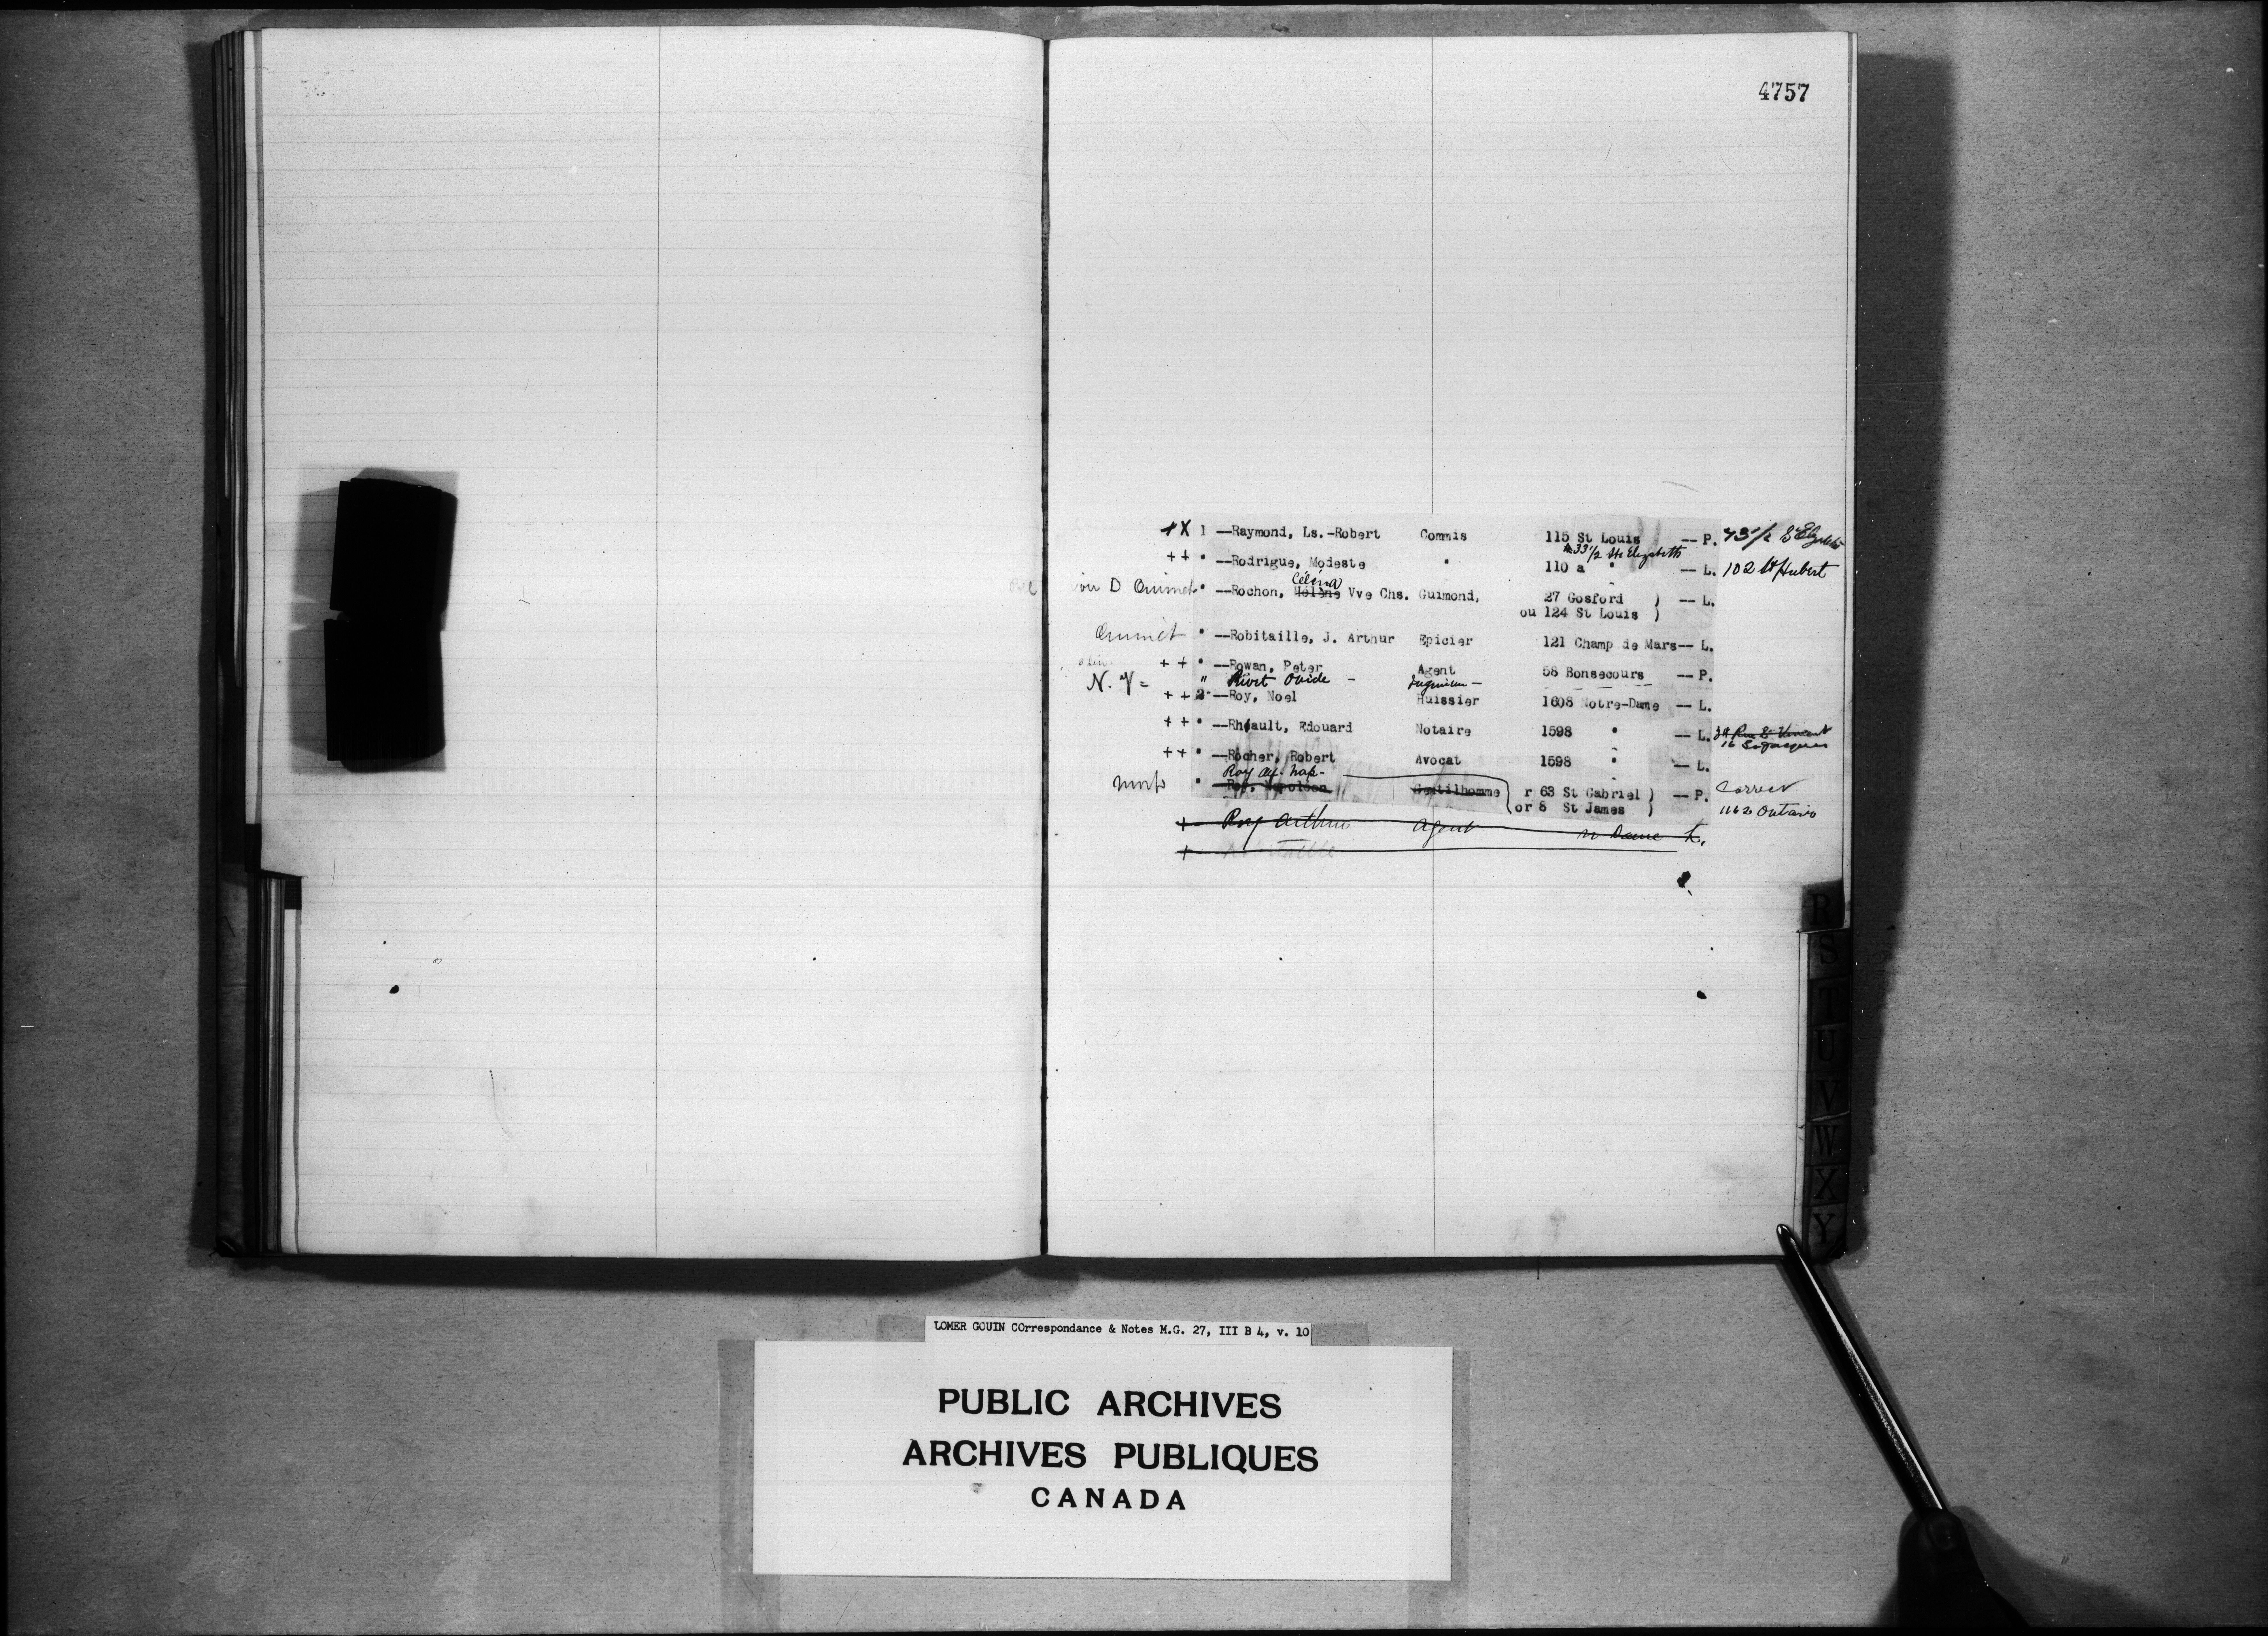 4757
+X 1 --Raymond, Ls.-Robert Commis 115 St Louis -- P. 73 1/2 St Elizabeth
33 1/2 Ste Elizabeth
++ " --Rodrigue, Modeste " 110 a " -- L. 102 St Hubert
voir D Ouimet " --Rochon, Hélène Célina Vve Chs. Guimond, 27 Gosford ) -- L.
ou 124 St Louis )
Ouimet " --Robitaille, J. Arthur Epicier 121 Champ de Mars-- L.
++ " --Rowan, Peter Agent 58 Bonsecours -- P.
N. V = " Rivet Ovide -
++ 2 --Roy, Noel Huissier 1608 Notre-Dame -- L.
++ " --Rhéault, Edouard Notaire 1598 " -- L. 34 Rue St Vincent
16 St Jacques
++ " --Rocher, Robert Avocat 1598 " -- L.
Roy Alf. Nap-
mort " --Roy, Napoleon Gentilhomme r 63 St Gabriel ) -- P. Correct
or 8 St James ) 1162 Ontario
+ Roy Arthur Agent N Dame L.
+ Robitaille
R
S
T
U
V
W
X
Y
LOMER GOUIN COrrespondance & Notes M.G. 27, III B 4, v. 10
PUBLIC ARCHIVES
ARCHIVES PUBLIQUES
CANADA